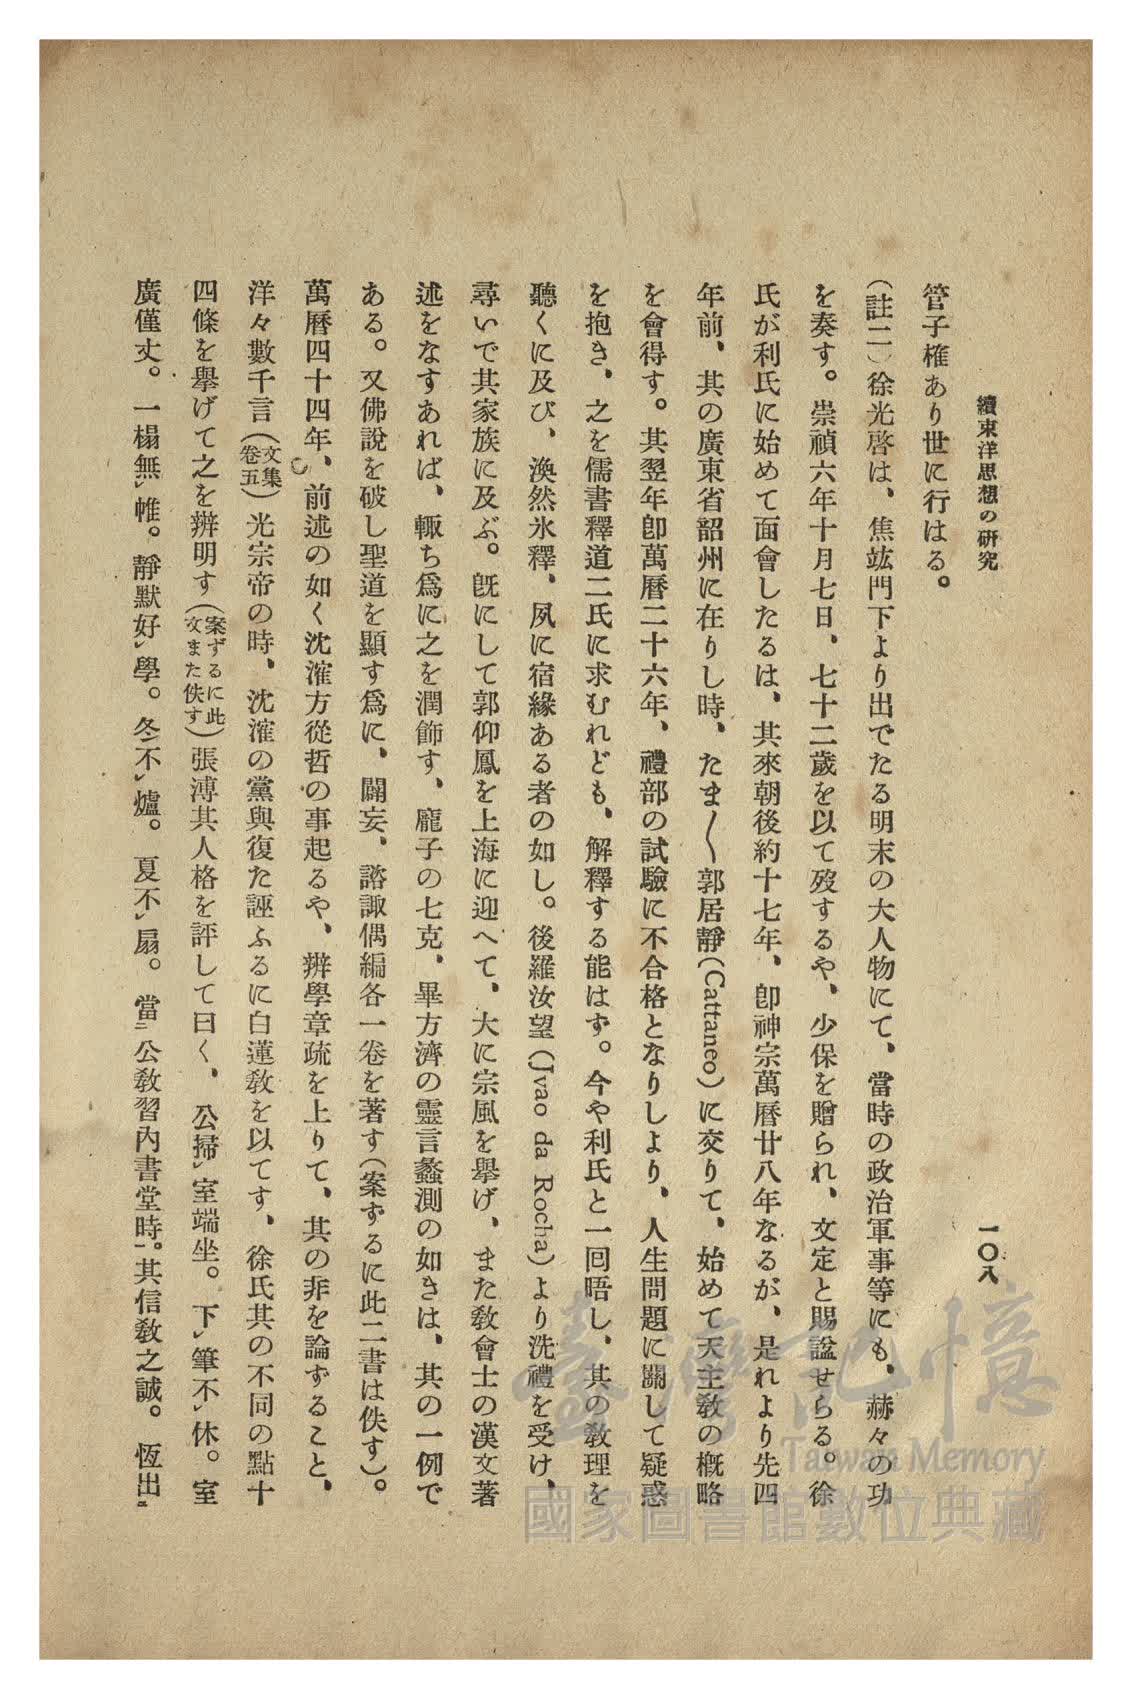 續東洋思想の研究
一〇八
管子權あり世に行はる。
(註二)徐光啓は、焦竑門下より出でたる明末の大人物にて、當時の政治軍事等にも、赫々の功
を奏す。崇禎六年十月七日、七十二歲を以て歿するや、少保を贈られ、文定と賜諡せらる。徐
氏が利氏に始めて面會したるは、其來朝後約十七年、卽神宗萬曆廿八年なるが、是れより先四
年前、其の廣東省韶州に在りし時、たま〱郭居靜(Cattaneo)に交りて、始めて天主敎の槪略
を會得す。其翌年卽萬曆二十六年、禮部の試驗に不合格となりしより、人生問題に關して疑惑
を抱き、之を儒書釋道二氏に求むれども、解釋する能はず。今や利氏と一回晤し、其の敎理を
聽くに及び、渙然氷釋、夙に宿緣ある者の如し。後羅汝望(Jvao da Rocha)より洗禮を受け、
尋いで其家族に及ぶ。既にして郭仰鳳を上海に迎へて、大に宗風を擧げ、また敎會士の漢文著
述をなすあれば、輙ち爲に之を潤飾す、龐子の七克、畢方濟の靈言蠡測の如きは、其の一例で
ある。又佛說を破し聖道を顯す爲に、闢妄、諮諏偶編各一卷を著す(案ずるに此二書は佚す)。
萬曆四十四年、前述の如く沈㴶方從哲の事起るや、辨學章疏を上りて、其の非を論ずること、
洋々數千言(文集卷五)光宗帝の時、沈㴶の黨與復た誣ふるに白蓮敎を以てす、徐氏其の不同の點十
四條を擧げて之を辨明す(案ずるに此文また佚す)張溥其人格を評して曰く、公掃㆑室端坐。下㆑筆不㆑休。室
廣僅丈。一榻無㆑帷。靜默好㆑學。冬不㆑爐。夏不㆑扇。當㆓公敎習內書堂時㆒。其信敎之誠。恆出㆓
臺灣記憶
Taiwan Memory
國家圖書館數位典藏